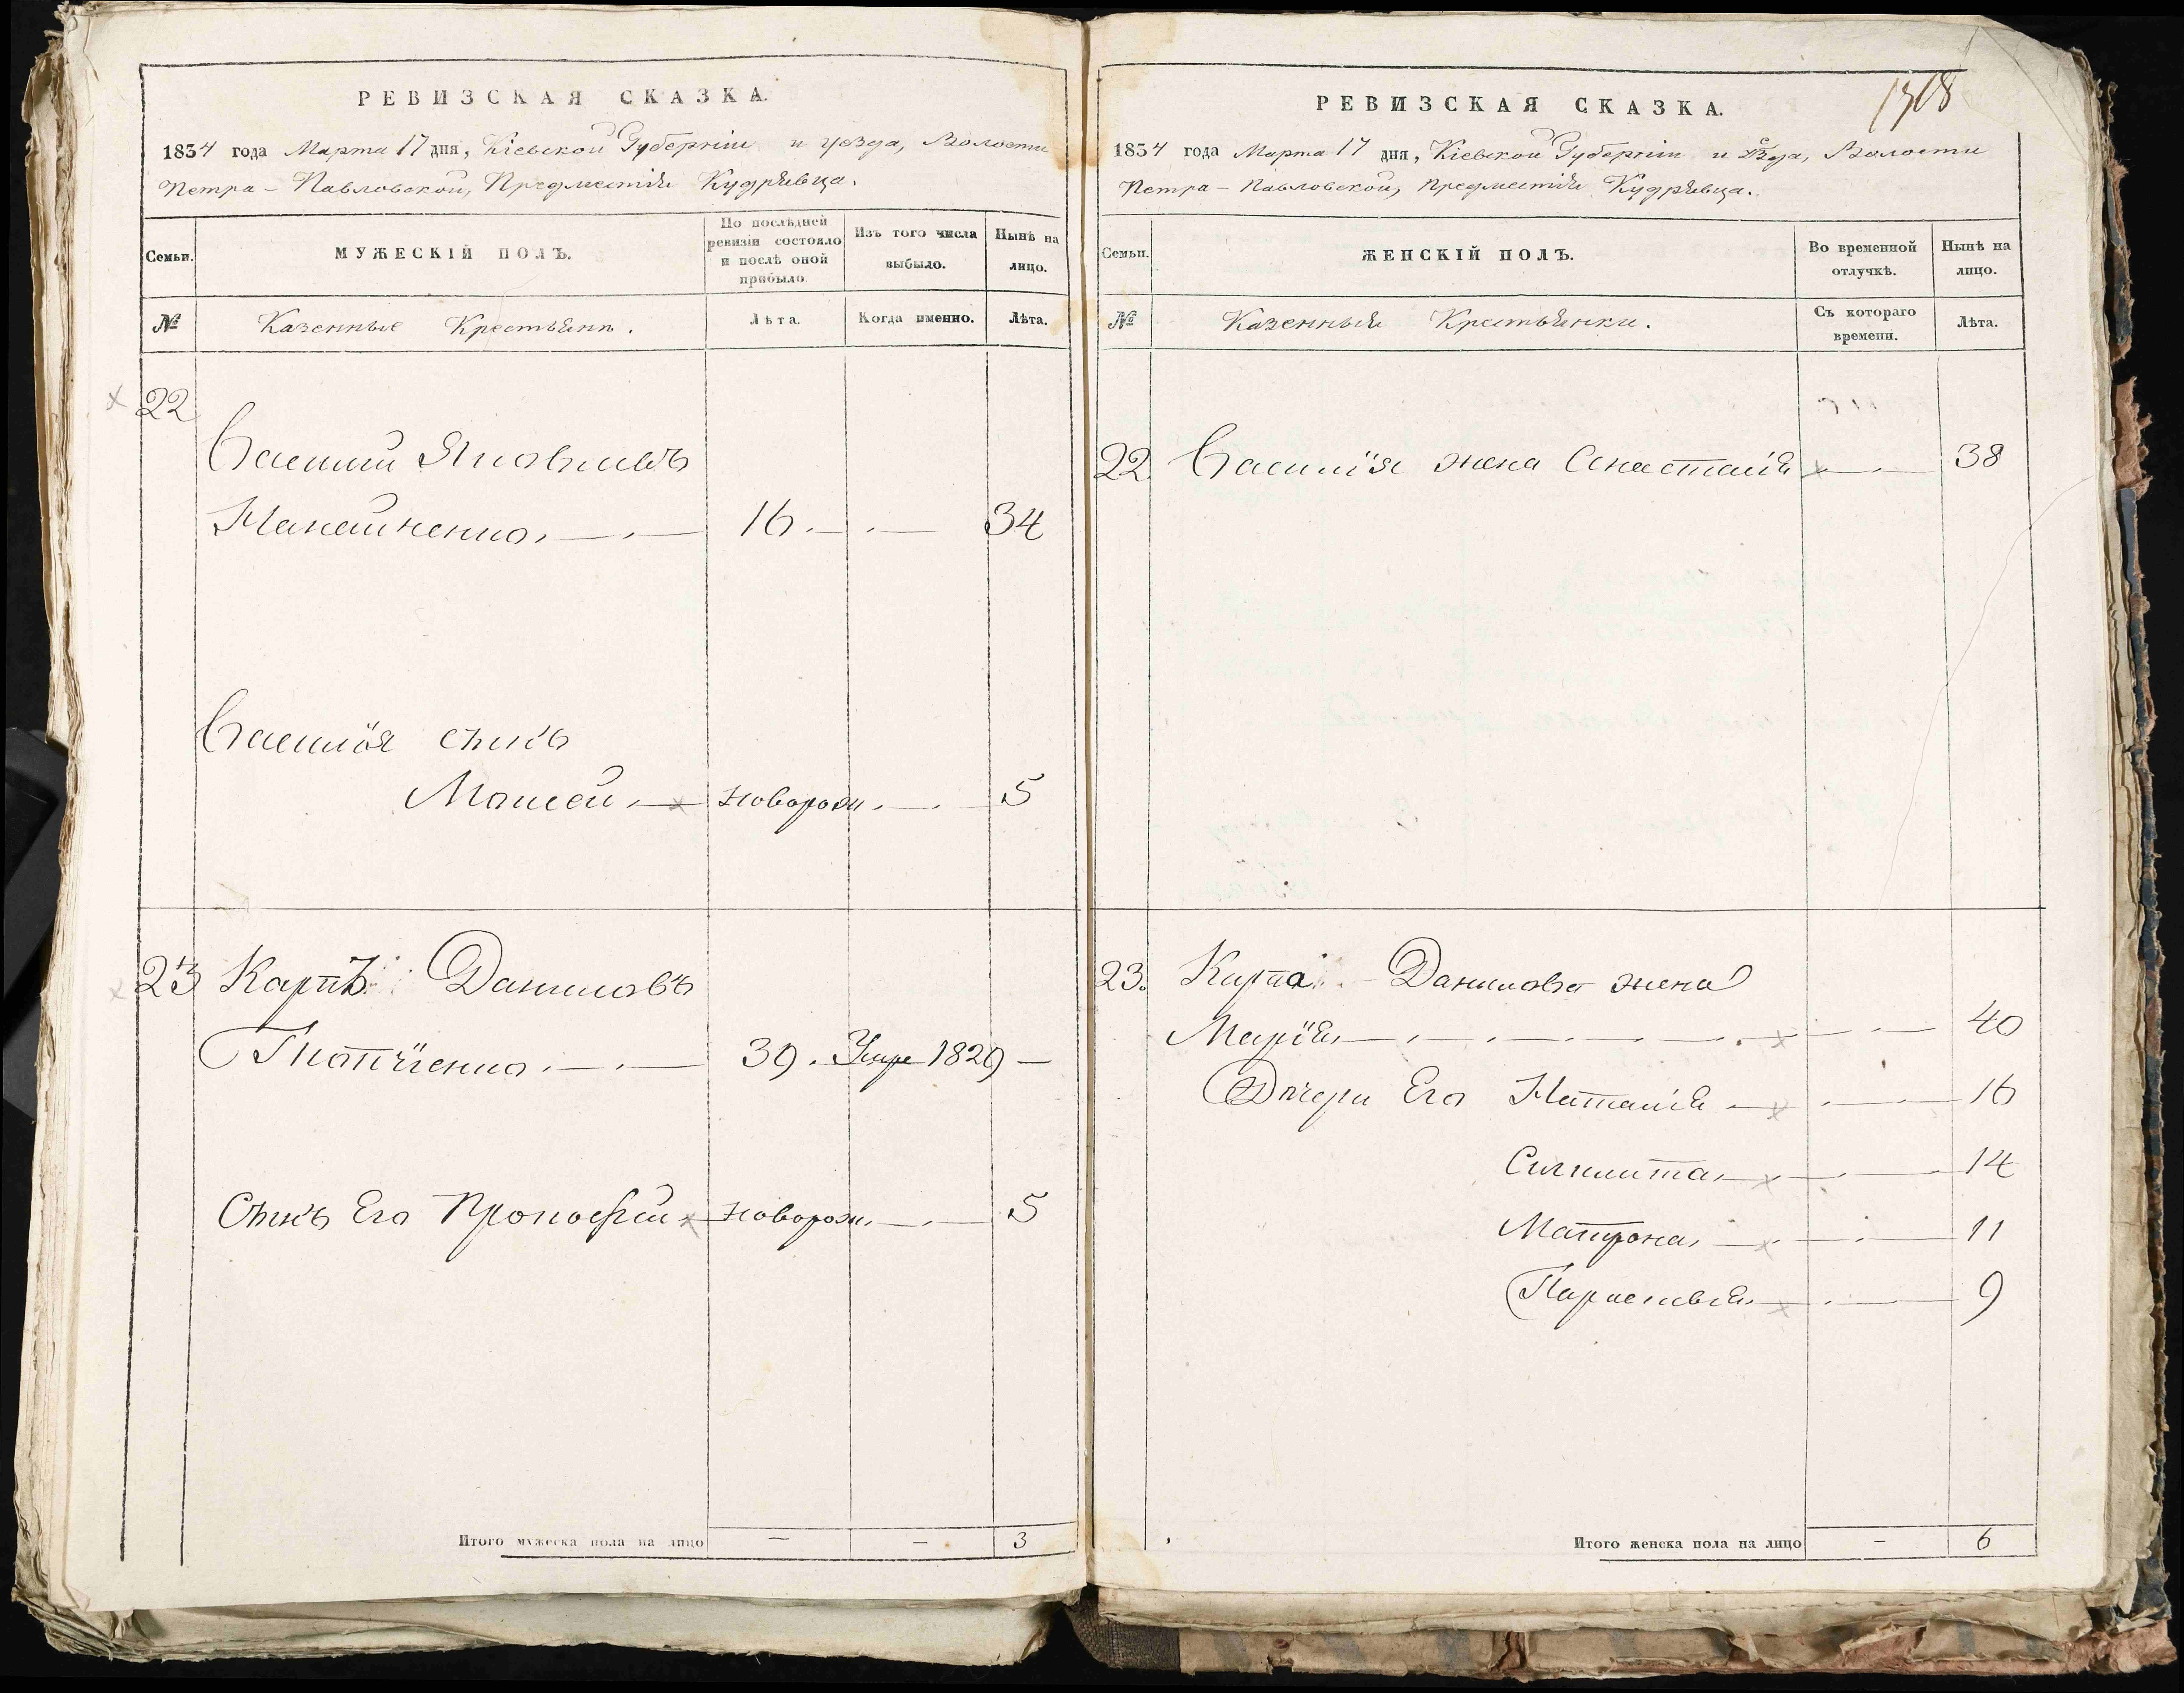 РЕВИЗСКАЯ СКАЗКА.
1834 года Марта 17 дня, Кіевской Губерніи и уезда, Волости
Петра-Павловской, Предместія Кудрявца.
Семьи.
МУЖЕСКІЙ ПОЛЪ.
По послѣдней ревизіи состояло и послѣ оной прибыло.
Изъ того числа выбыло.
Нынѣ на лицо.
№
Казенные Крестьяне.
Лѣта.
Когда именно.
Лѣта.
22
Василий Яковлевъ
16. 34
Василія сынъ
Моисей новорож. 5
23 Карпъ Даниловъ
39. Умре 1829
Сынъ Его Прокофей новорож. 5
Итого мужеска пола на лицо — — 3
1308
РЕВИЗСКАЯ СКАЗКА.
1834 года Марта 17 дня, Кіевской Губерніи и уѣзда, Волости
Петра-Павловской, предместія Кудрявца.
Семьи.
ЖЕНСКІЙ ПОЛЪ.
Во временной отлучкѣ.
Нынѣ на лицо.
№
Казенныя Крестьянки.
Съ котораго времени.
Лѣта.
22 Василія жена Анастасія 38
23. Карпа Данилова жена
Марія 40
Дочери Его Наталія 16
14
Матрона 11
Параскевія 9
Итого женска пола на лицо — 6